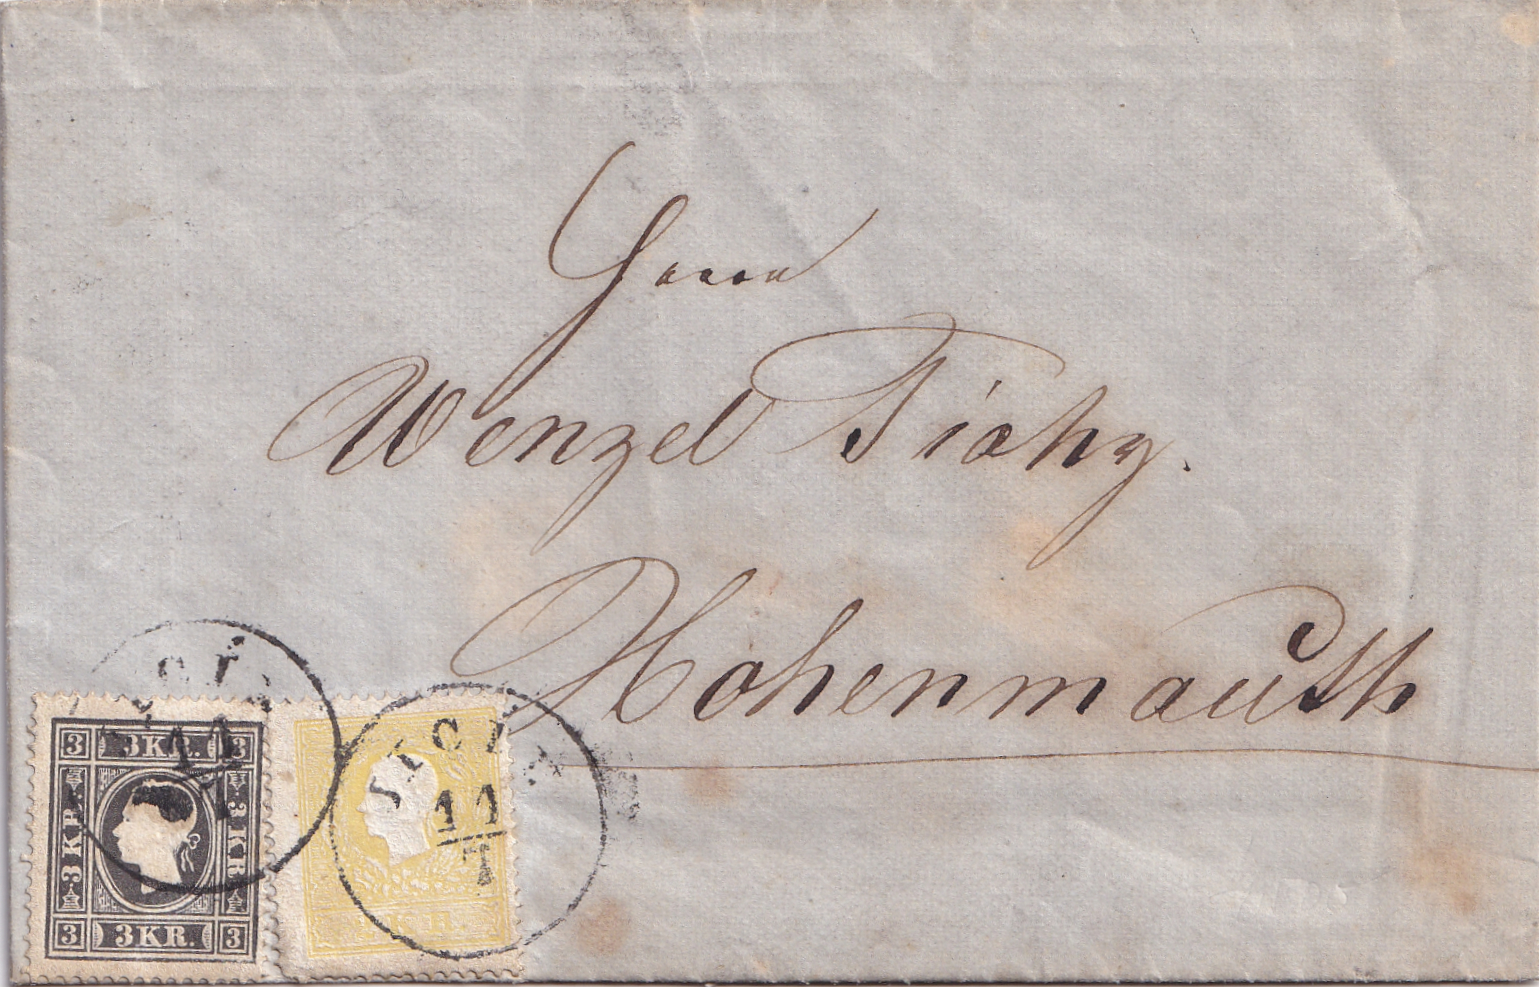 Herrn
Wenzel Tichy.
Hohenmauth
3 3KR. 3
3 KR. 3 KR.
3 3KR. 3
11
11
7